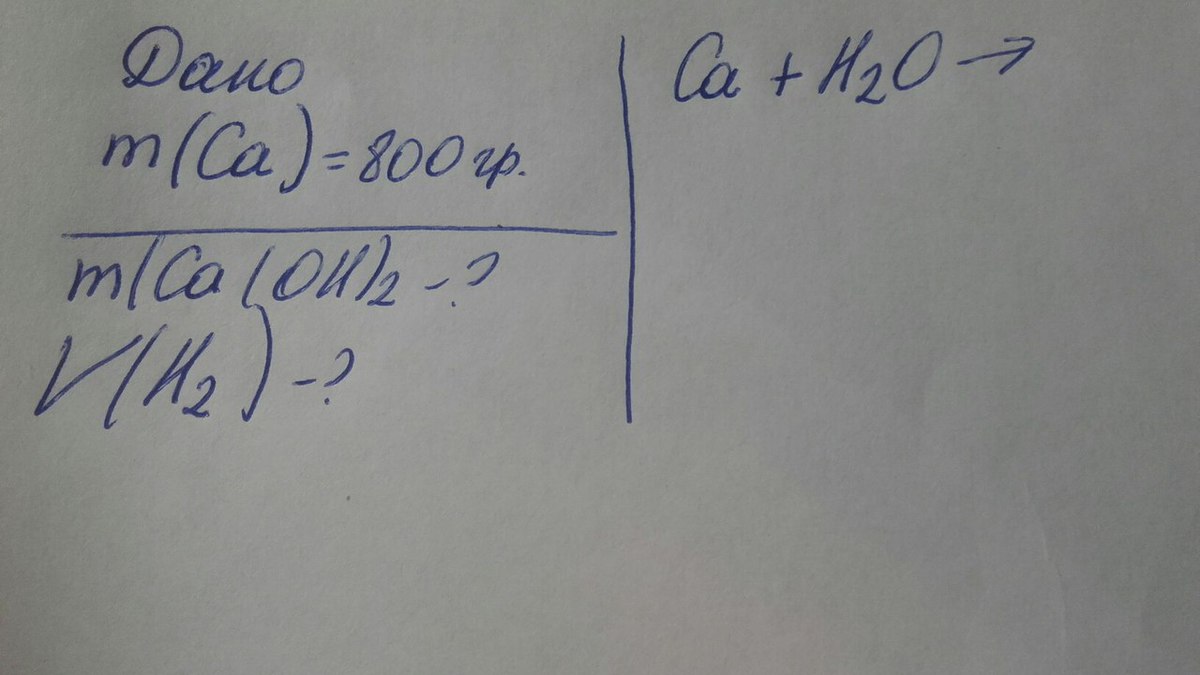 Дано
m(Ca)=800гр.
m(Ca(OH)2-?
V(H2)-?
Ca+H2O→